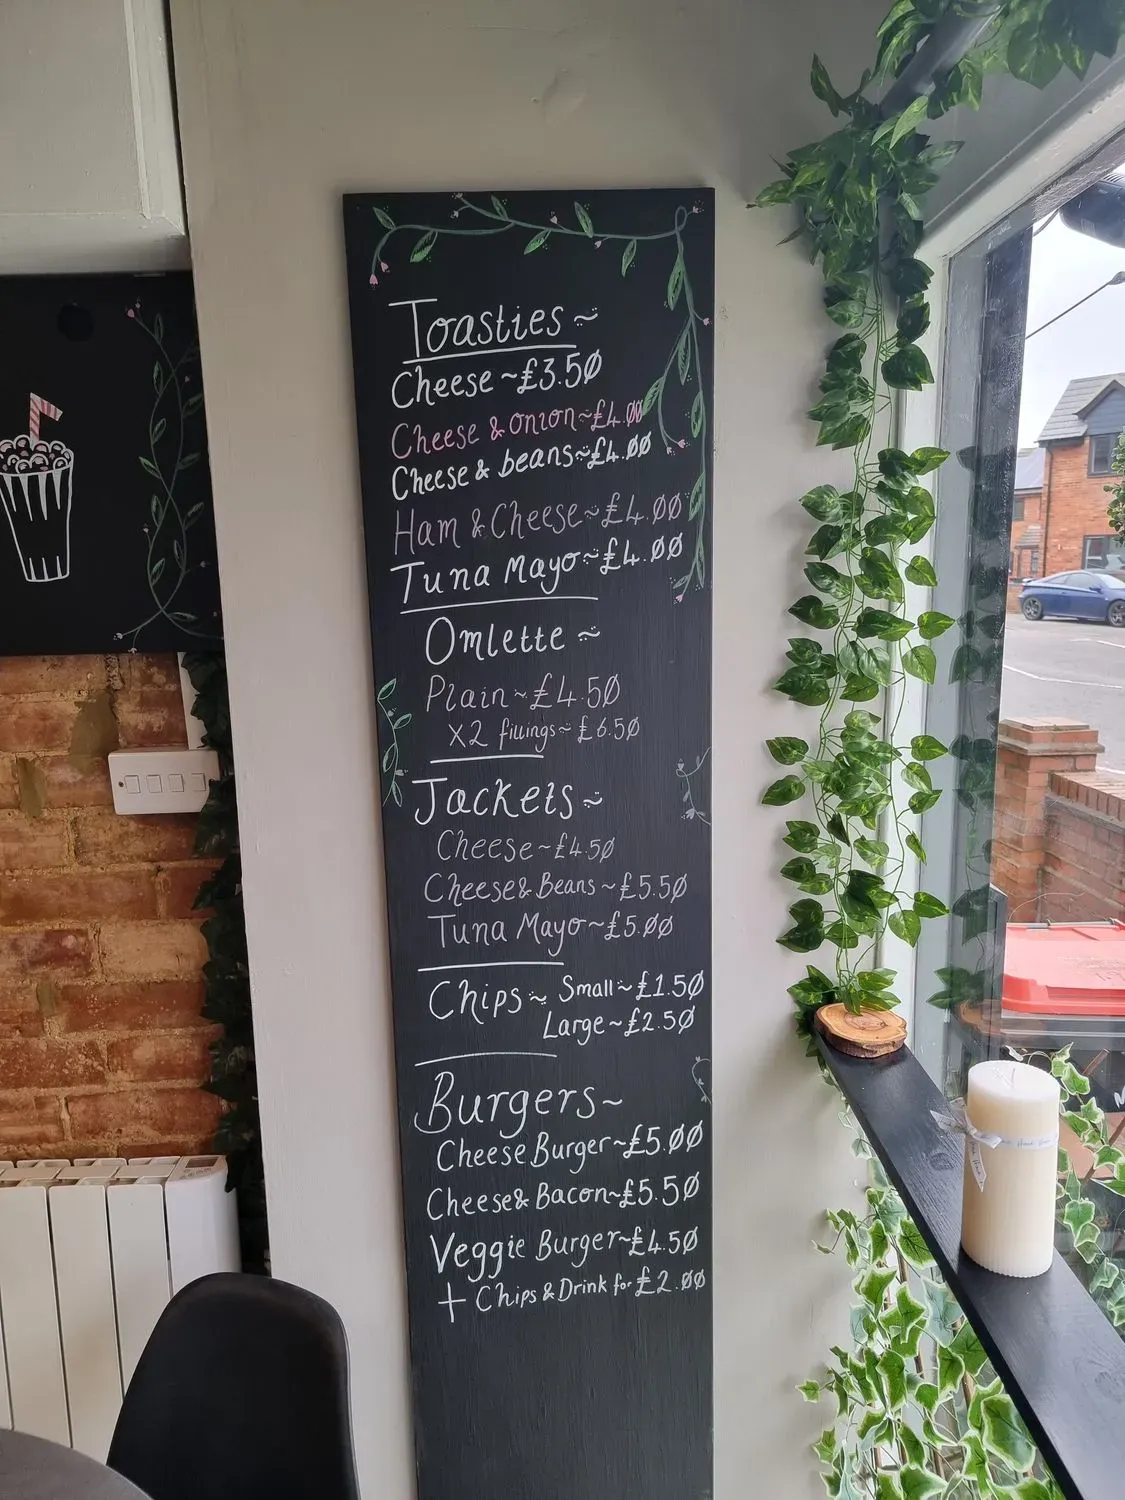 Toasties ~
Cheese ~ £3.50
Cheese & onion ~ £4.00
Cheese & beans ~ £4.00
Ham & Cheese ~ £4.00
Tuna Mayo ~ £4.00
Omlette ~
Plain ~ £4.50
x2 fillings ~ £6.50
Jackets ~
Cheese ~ £4.50
Cheese & Beans ~ £5.50
Tuna Mayo ~ £5.00
Chips ~ Small ~ £1.50
Large ~ £2.50
Burgers ~
Cheese Burger ~ £5.00
Cheese & Bacon ~ £5.50
Veggie Burger ~ £4.50
+ Chips & Drink for £2.00